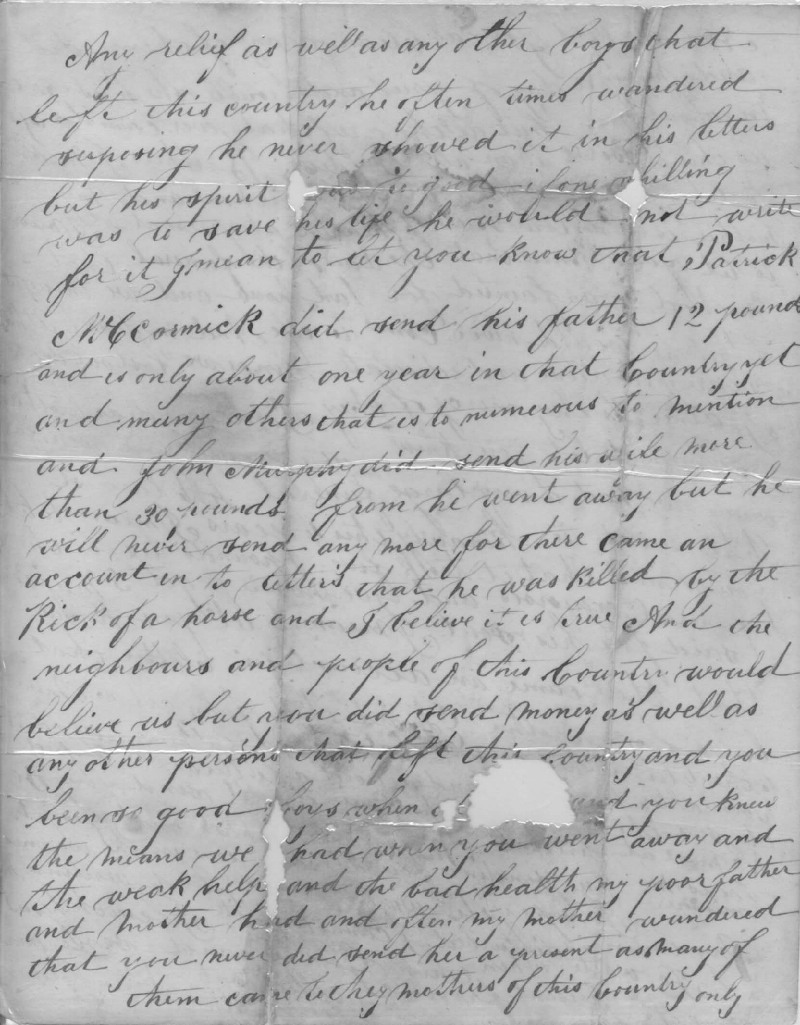 Any relief as well as any other boys that
left this country he often times wandered
suposing he never showed it in his letters
but his spirit was so good if one shilling
was to save his life he would not write
for it I mean to let you know that Patrick
McCormick did send his father 12 pounds
and is only about one year in that Country yet
and many others that is to numerous to mention
and John Murphy did send his wife more
than 30 pounds from he went away but he
will never send any more for there came an
account in to letters that he was Killed by the
Kick of a horse and I believe it is true And the
neighbours and people of this Country would
believe us but you did send money as well as
any other persons that left this Country and you
been so good boys when and you knew
the means we had when you went away and
the weak help and the bad health my poor father
and Mother had and often my mother wundered
that you never did send her a present as many of
them came to they mothers of this Country only